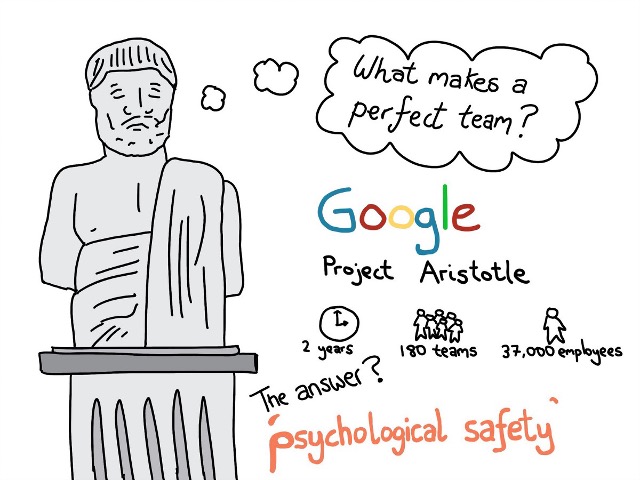 What makes a
perfect team?
Google
Project Aristotle
2 years
180 teams
37,000 employees
The answer?
'psychological safety'